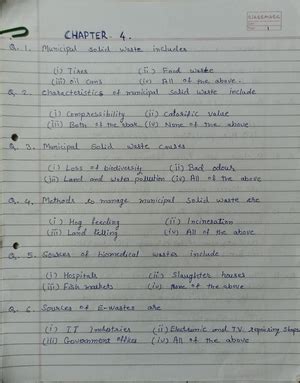 CHAPTER. 4.
Q. 1. Municipal solid waste includes
(i) Tires (ii) Food waste
(iii) oil cans (iv) All of the above.
Q. 2. Characteristics of municipal solid waste include
(i) Compressibility (ii) Calorific value
(iii) Both of the above (iv) None of the above
Q. 3. Municipal Solid Waste causes
(i) Loss of biodiversity (ii) Bad odour
(iii) Land and water pollution (iv) All of the above
Q. 4. Methods to manage municipal solid waste are
(i) Hog feeding (ii) Incineration
(iii) Land filling (iv) All of the above
Q. 5. Sources of biomedical wastes include
(i) Hospitals (ii) Slaughter houses
(iii) Fish markets (iv) None of the above
Q. 6. Sources of E-wastes are
(i) IT Industries (ii) Electronic and T.V. repairing shops
(iii) Government offices (iv) All of the above